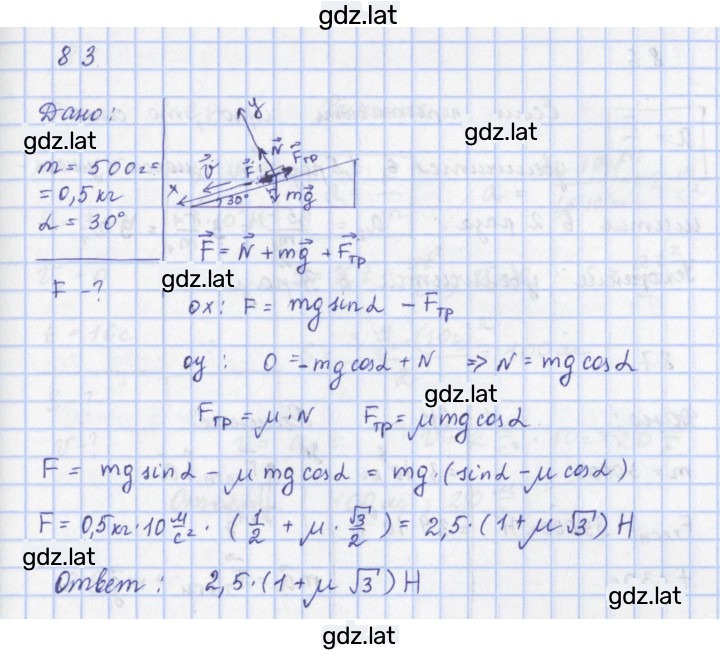 gdz.lat
83
Дано:
gdz.lat
gdz.lat
m = 500г =
= 0,5 кг
α = 30°
F - ?
y
N⃗
F⃗тр
v⃗
F⃗
x
30°
mg⃗
F⃗ = N⃗ + mg⃗ + F⃗тр
gdz.lat
ox: F = mg sinα - Fтр
oy: 0 = -mg cosα + N ⇒ N = mg cosα
gdz.lat
Fтр = μ·N Fтр = μmg cosα
F = mg sinα - μmg cosα = mg·(sinα - μcosα)
F = 0,5кг·10 м/с² · (1/2 + μ·√3/2) = 2,5·(1+μ√3) Н
gdz.lat
Ответ: 2,5·(1+μ√3) Н
gdz.lat
gdz.lat